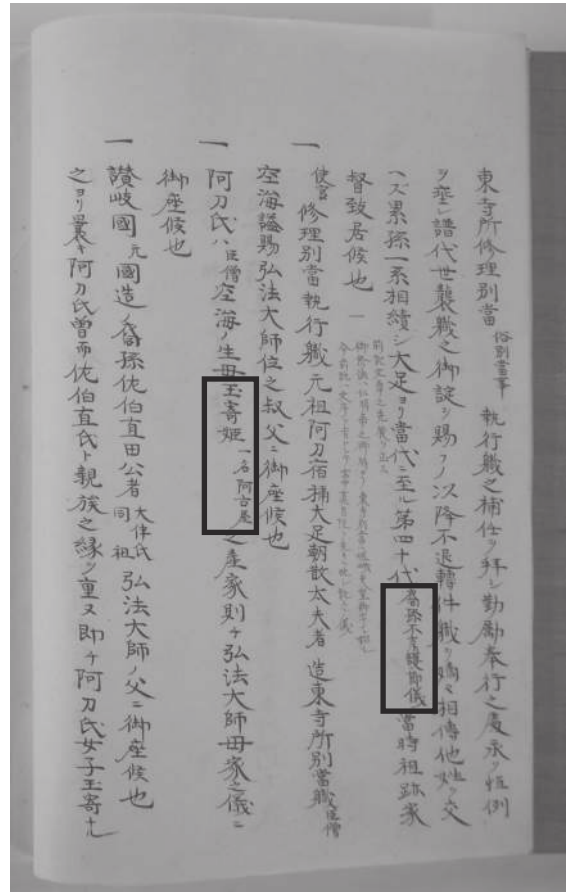 東寺所修理別當 俗別當事 執行職之補任ヲ拜シ勤勵奉行之處永ク恒例
ヲ垂レ譜代世襲職之御諚ヲ賜フノ以降不退轉件職ヲ嫡々相傳他姓ヲ交
ヘズ累孫一系相續シ大足ヨリ當代ニ至ル第四十代裔孫不肖護節儀當時祖跡家
督致居候也
一 使官 修理別當執行職元祖阿刀宿祢大足朝散太夫者 造東寺所別當職 臣僧
空海謚賜弘法大師位之叔父ニ御座候也
一 阿刀氏ハ 臣僧 空海ノ生母玉寄姫 一名阿古屋 之産家則チ弘法大師母家之儀ニ
御座候也
一 讃岐國 元 國造ノ裔孫佐伯直田公者 大伴氏同祖 弘法大師ノ父ニ御座候也
之ヨリ曩キ阿刀氏曾而佐伯直氏ト親族之縁ヲ重又即チ阿刀氏女子玉寄ナル